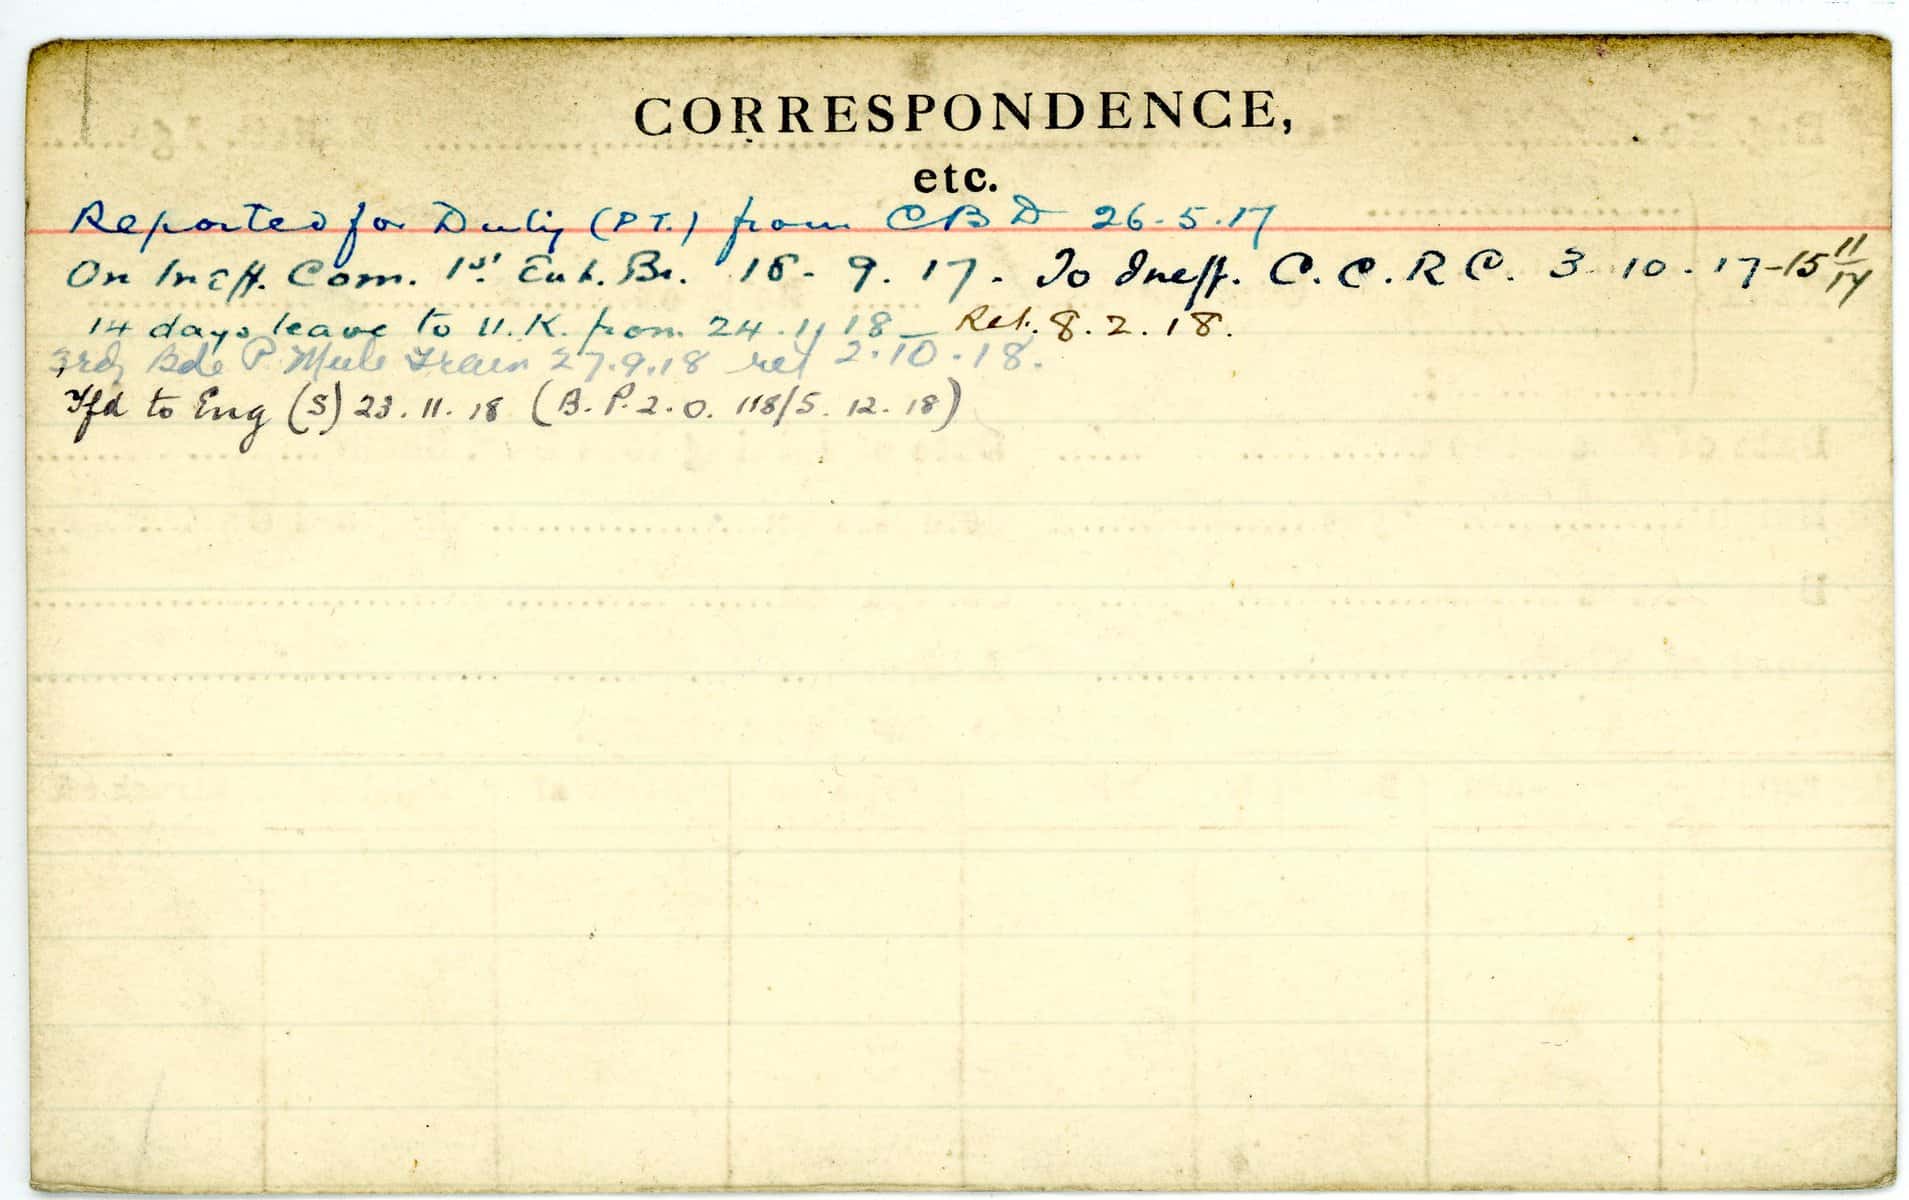 CORRESPONDENCE,
etc.
Reported for Duty (P T.) from C B D 26-5-17
On Ineff. Com. 1st. Ent. Bn. 18-9.17. To Ineff. C.C.R.C. 3-10-17-15 11/17
14 days leave to U.K. from 24.1.18 – Ret. 8.2.18.
3rd Bde P. Mule Train 27.9.18 ret 2.10.18.
Tfd to Eng (S) 23.11.18 (B.P.2.O. 118/5.12.18)